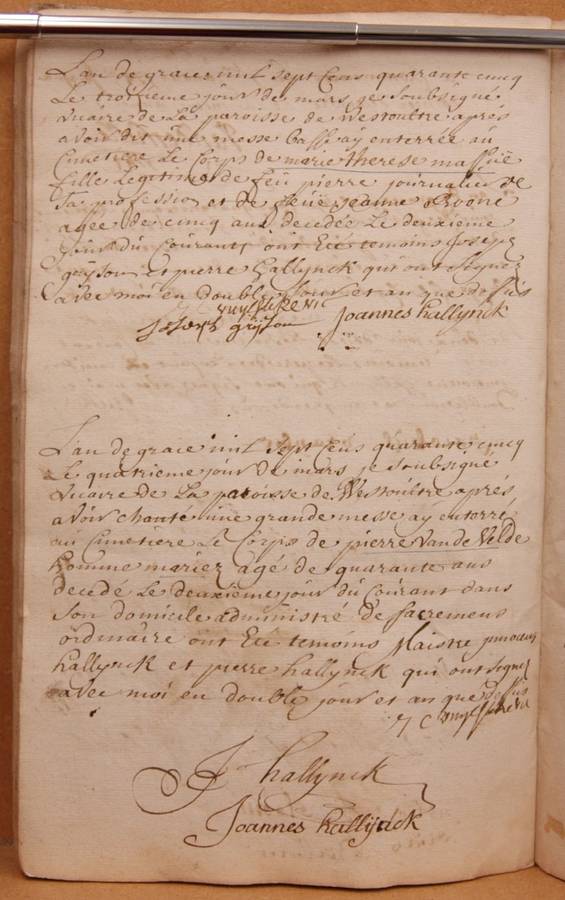 L'an de grace mil sept cens quarante cincq
Le troisieme jour de mars je soubsigné
vicaire de La paroisse de Westoultre après
avoir dit une messe basse aÿ enterrée au
Cimetiere Le Corps de marie therese massüe
fille Legitime de feu pierre journalier de
sa profession et de feüe jeanne
agée de cincq ans decedée Le deuxieme
jour du Courant, ont Eté temoins Joseph
grÿson et pierre hallynck qui ont signez
avec moi en double jour et an que dessus
joseph grÿson Joannes hallynck
L'an de grace mil sept Cens quarante cincq
Le quatrieme jour de mars je soubsigné
vicaire de La paroisse de Westoultre après
avoir chanté une grande messe aÿ enterré
au Cimetiere Le Corps de pierre Van de Velde
homme mariez agé de quarante ans
decedé Le deuxieme jour du Courant dans
son domicile administré de sacremens
ordinaire ont Eté temoins Maistre
hallynck et pierre hallynck qui ont signez
avec moi en double jour et an que dessus
J hallynck
Joannes hallijnck